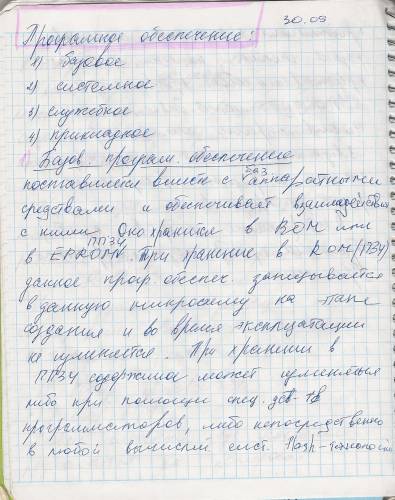 30.09
Программное обеспечение:
1) базовое
2) системное
3) служебное
4) прикладное
1) Базов. програм. обеспечение
поставляется вместе с баз аппаратными
средствами и обеспечивает взаимодействие
с ними. Оно хранится в ROM или
в EPROM ППЗУ. При хранение в ROM (ПЗУ)
данное прогр. обеспеч. записывается
в данную микросхему на этапе
создания и во время эксплуатации
не изменяется. При хранении в
ППЗУ содержимое может изменяться
либо при помощи спец. устр-тв
программаторов, либо непосредственно
в любой вычислит. сист. Flash-технологии